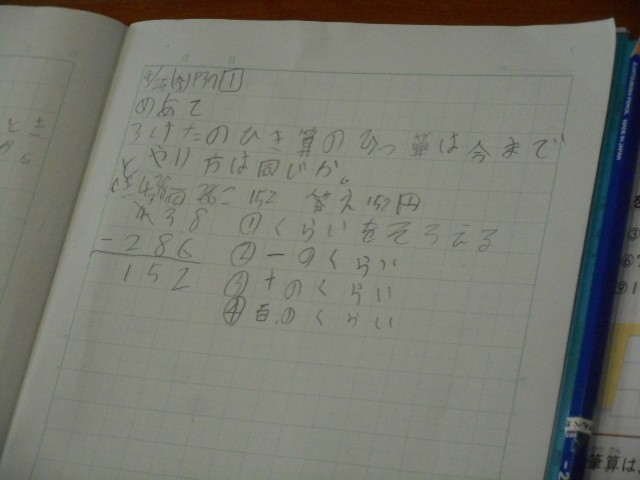 めあて
3けたのひき算のひっ算は今まで
とやり方は同じか。
152 答え152円
438 ①くらいをそろえる
-286 ②一のくらい
152 ③十のくらい
④百のくらい
MADE IN JAPAN
筆算は、